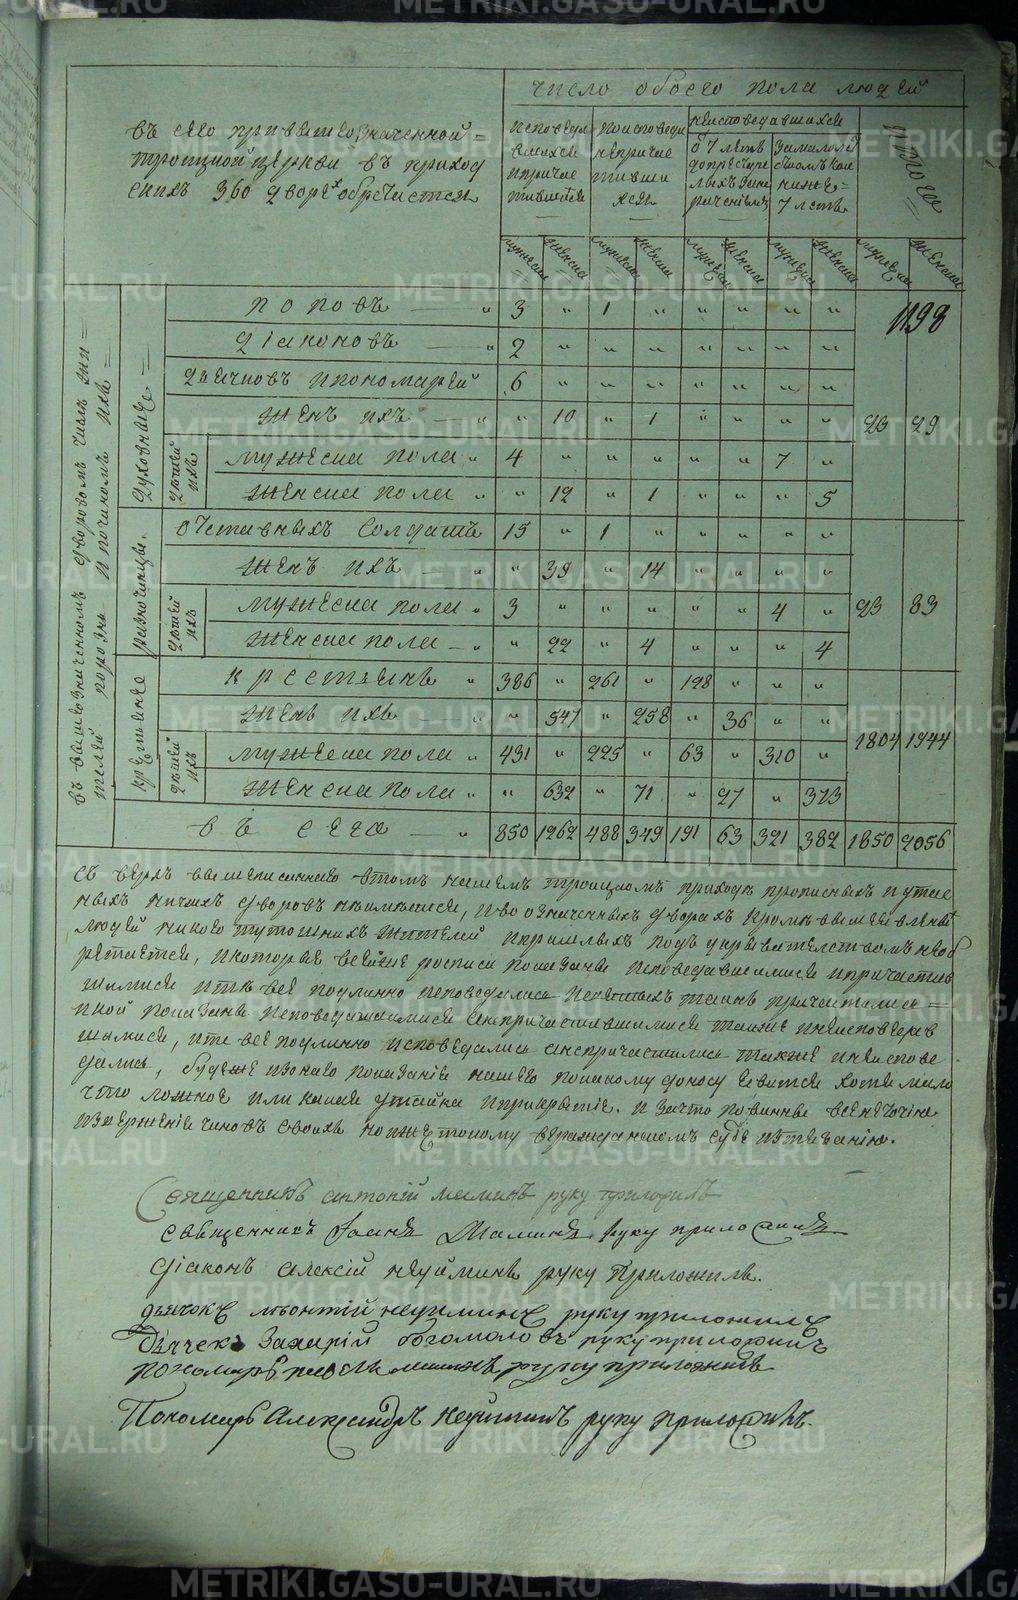 METRIKI.GASO-URAL.RU
число обоего пола людей
въ сего при вышеозначенной
троицкой церкви въ приход
скихъ 360 дворех обретчится
исповеда
вшихся
и причас
тившихся
поисповеди
непричас
тивши
хся
неисповедавшихся
от 7 летъ
замалолет
7 летъ
итого
мужеска женска мужеска женска мужеска женска мужеска женска мужеска женска
въ вышеозначенномъ дворовомъ числе жи
телей порознь и по чиномъ ихъ
духовные
поповъ 3 „ 1 „ „ „ „ „ 1198
діаконовъ 2 „ „ „ „ „ „ „
дьячковъ и пономарей 6 „ „ „ „ „ „ „
женъ ихъ „ 10 „ 1 „ „ „ „ 23 29
детей ихъ
мужеска пола 4 „ „ „ „ „ 7 „
женска пола „ 12 „ 1 „ „ „ 5
разночинцы
отставныхъ солдатъ 15 „ 1 „ „ „ „ „
женъ ихъ „ 39 „ 14 „ „ „ „
детей ихъ
мужеска пола 3 „ „ „ „ „ 4 „ 23 83
женска пола „ 22 „ 4 „ „ „ 4
крестьяне
крестьянъ 386 „ 261 „ 128 „ „ „
женъ ихъ „ 547 „ 258 „ 36 „ „ 1804 1944
детей ихъ
мужеска пола 431 „ 225 „ 63 „ 310 „
женска пола „ 632 „ 71 „ 27 „ 373
всего 850 1262 488 349 191 63 321 382 1850 2056
сверхъ вышеписаннаго втомъ нашемъ троицкомъ приходе прописныхъ и утаен
ныхъ ничьихъ дворовъ неимеется, и во означенныхъ дворахъ кроме вышеявленныхъ
людей никого тутошнихъ жителей и пришлыхъ подъ укрывателствомъ необ
ретается, и которые всейже росписи показаны исповедавшимися и причастив
шимися и те все подлинно исповедались и святыхъ таинъ причастились
а кои показаны исповедавшимися а непричастившимися такие и неисповедав
шимися, и те все подлинно исповедались а непричастились также и неиспове
дались, буде же из онаго показаніе нашего по какому доносу явится хотя мало
что ложное или какая утайка и прикрытіе. и за что повинны все неточію
извержение чиновъ своихъ но и жестокому в гражданскомъ суде истезанію.
Священникъ антоній маминъ руку приложилъ
священникъ Іоаннъ Маминъ руку приложилъ
діаконъ алексій неуйминъ руку приложилъ.
дьячокъ леонтій неуиминъ руку приложилъ
Дьячекъ Захарій богомоловъ руку приложилъ
пономарь маминъ руку приложилъ
Пономарь Александръ неуиминъ руку приложилъ.